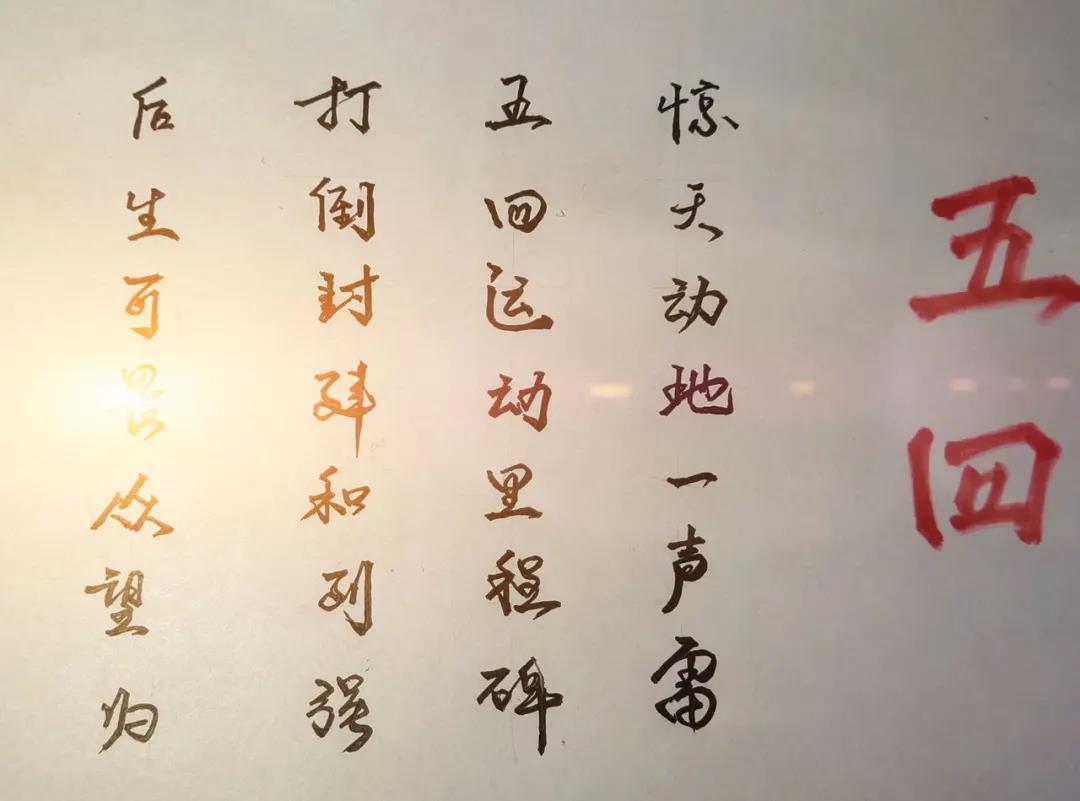 五四
惊天动地一声雷
五四运动里程碑
打倒封建和列强
后生可畏众望归